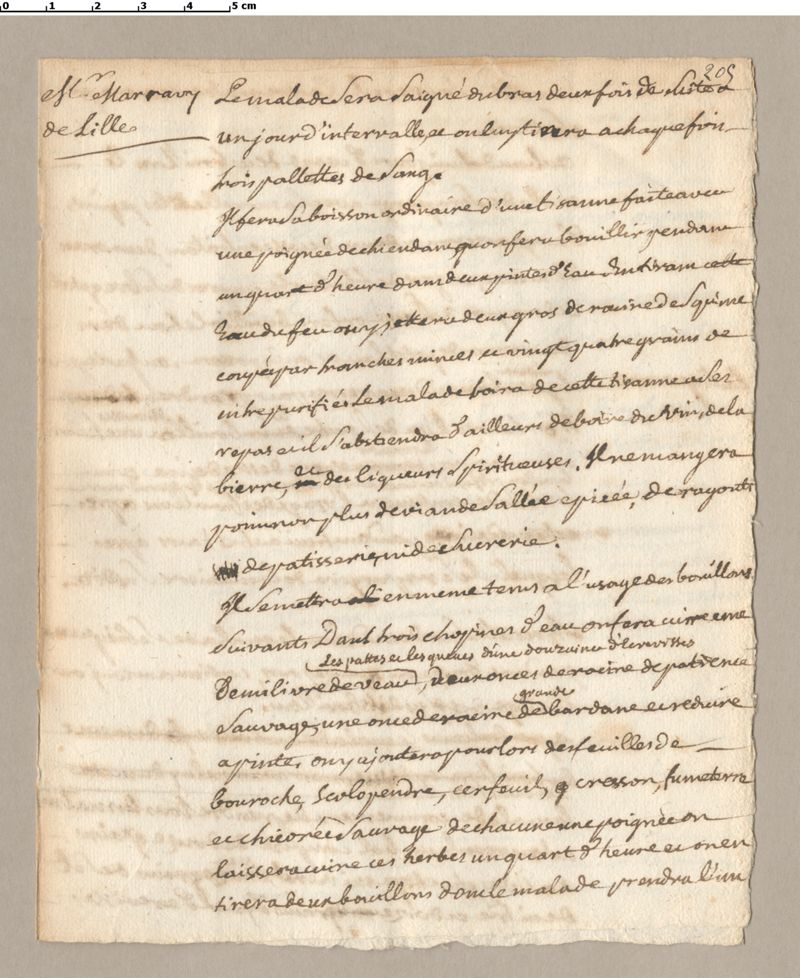 0 1 2 3 4 5 cm
205
Mr. Marravy
de Lille
Le malade sera saigné du bras deux fois de suite a
un jour d'interralle, et on luy tirera a chaque fois
trois pallettes de sang.
Il fera sa boisson ordinaire d'une tisanne faite avec
une poignée de chiendant qu on fera bouillir pendant
un quart d'heure dans deux pintes d'Eau En tirant cette
Eau du feu on y jettera deux gros de racine de Squine
coupée par tranches minces et vingt quatre grains de
nitre purifiés Le malade boira de cette tisanne a ses
repas et il s'abstiendra d'ailleurs de boire du vin, de la
bierre, et des liqueurs Spiritueuses. Il ne mangera
point non plus de viande sallée epicée, de ragouts
de patisserie, ni de sucrerie.
Il se mettra en meme tems a l'usage des bouillons
suivants Dans trois chopines d'eau on fera cuire une
Les pattes et les queues d'une douzaine d'Ecrevisses
Demi livre de veau, deux onces de racine de patience
grande
sauvage, une once de racine de bardane et reduire
a pinte, on y ajoutera pour lors des feuilles de
bouroche, scolopendre, cerfeuil, cresson, fumeterre
et chicorée sauvage de chacune une poignée on
laissera cuire ces herbes un quart d'heure et on en
tirera deux bouillons dont le malade prendra l'un